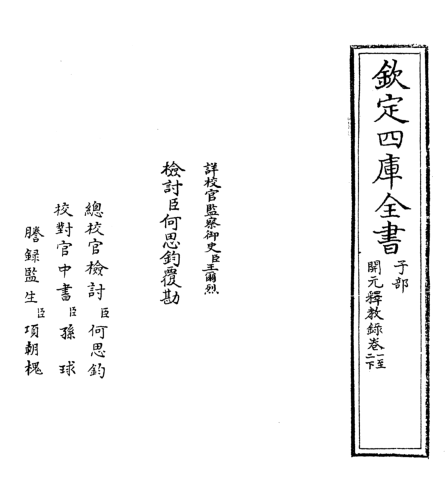 欽定四庫全書
子部
開元釋教錄卷一至二下
詳校官監察御史臣王爾烈
檢討臣何思鈞覆勘
總校官檢討臣何思鈞
校對官中書臣孫球
謄録監生臣項朝槐